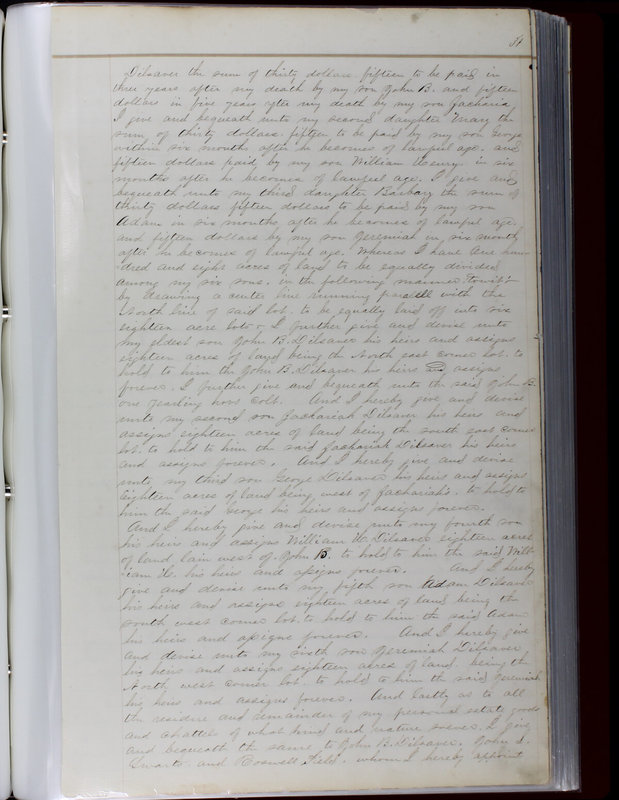 51
Dilsaver the sum of thirty dollars fifteen to be paid in
three years after my death by my son John B. and fifteen
dollars in five years after my death by my son Zacharia
I give and bequeath unto my second daughter Mary the
sum of thirty dollars. fifteen to be paid by my son George
within six months after he becomes of lawful age. and
fifteen dollars paid by my son William Henry in six
months after he becomes of lawful age. I give and
bequeath unto my third daughter Barbary the sum of
thirty dollars fifteen dollars to be paid by my son
Adam in six months after he becomes of lawful age
and fifteen dollars by my son Jeremiah in six month
after he becomes of lawful age. Whereas I have one hun-
dred and eight acres of land to be equally divided
among my six sons. in the following manner towit:
by drawing a center line running parallel with the
North line of said lot. to be equally laid off into six
eighteen acre lots. I further give and devise unto
my eldest son John B. Dilsaver his heirs and assigns
eighteen acres of land being the North east corner lot. to
hold to him the John B. Dilsaver his heirs and assigns
forever. I further give and bequeath unto the said John B.
one yearling hors colt. And I hereby give and devise
unto my second son Zachariah Dilsaver his heirs and
assigns eighteen acres of land being the south east corner
lot. to hold to him the said Zachariah Dilsaver his heirs
and assigns forever. And I hereby give and devise
unto my third son George Dilsaver his heirs and assigns
eighteen acres of land being west of Zachariah's. to hold to
him the said George his heirs and assigns forever.
And I hereby give and devise unto my fourth son
his heirs and assigns William H. Dilsaver eighteen acres
of land lain west of John B. to hold to him the said Will-
iam H. his heirs and assigns forever. And I hereby
give and devise unto my fifth son Adam Dilsaver
his heirs and assigns eighteen acres of land being the
south west corner lot. to hold to him the said Adam
his heirs and assigns forever. And I hereby give
and devise unto my sixth son Jeremiah Dilsaver
his heirs and assigns eighteen acres of land. being the
North west corner lot. to hold to him the said Jeremiah
his heirs and assigns forever. And lastly as to all
the residue and remainder of my personal estate goods
and chattels of what kind and nature soever. I give
and bequeath the same to John B. Dilsaver. John S.
Swarts and Roswell Field. whom I hereby appoint